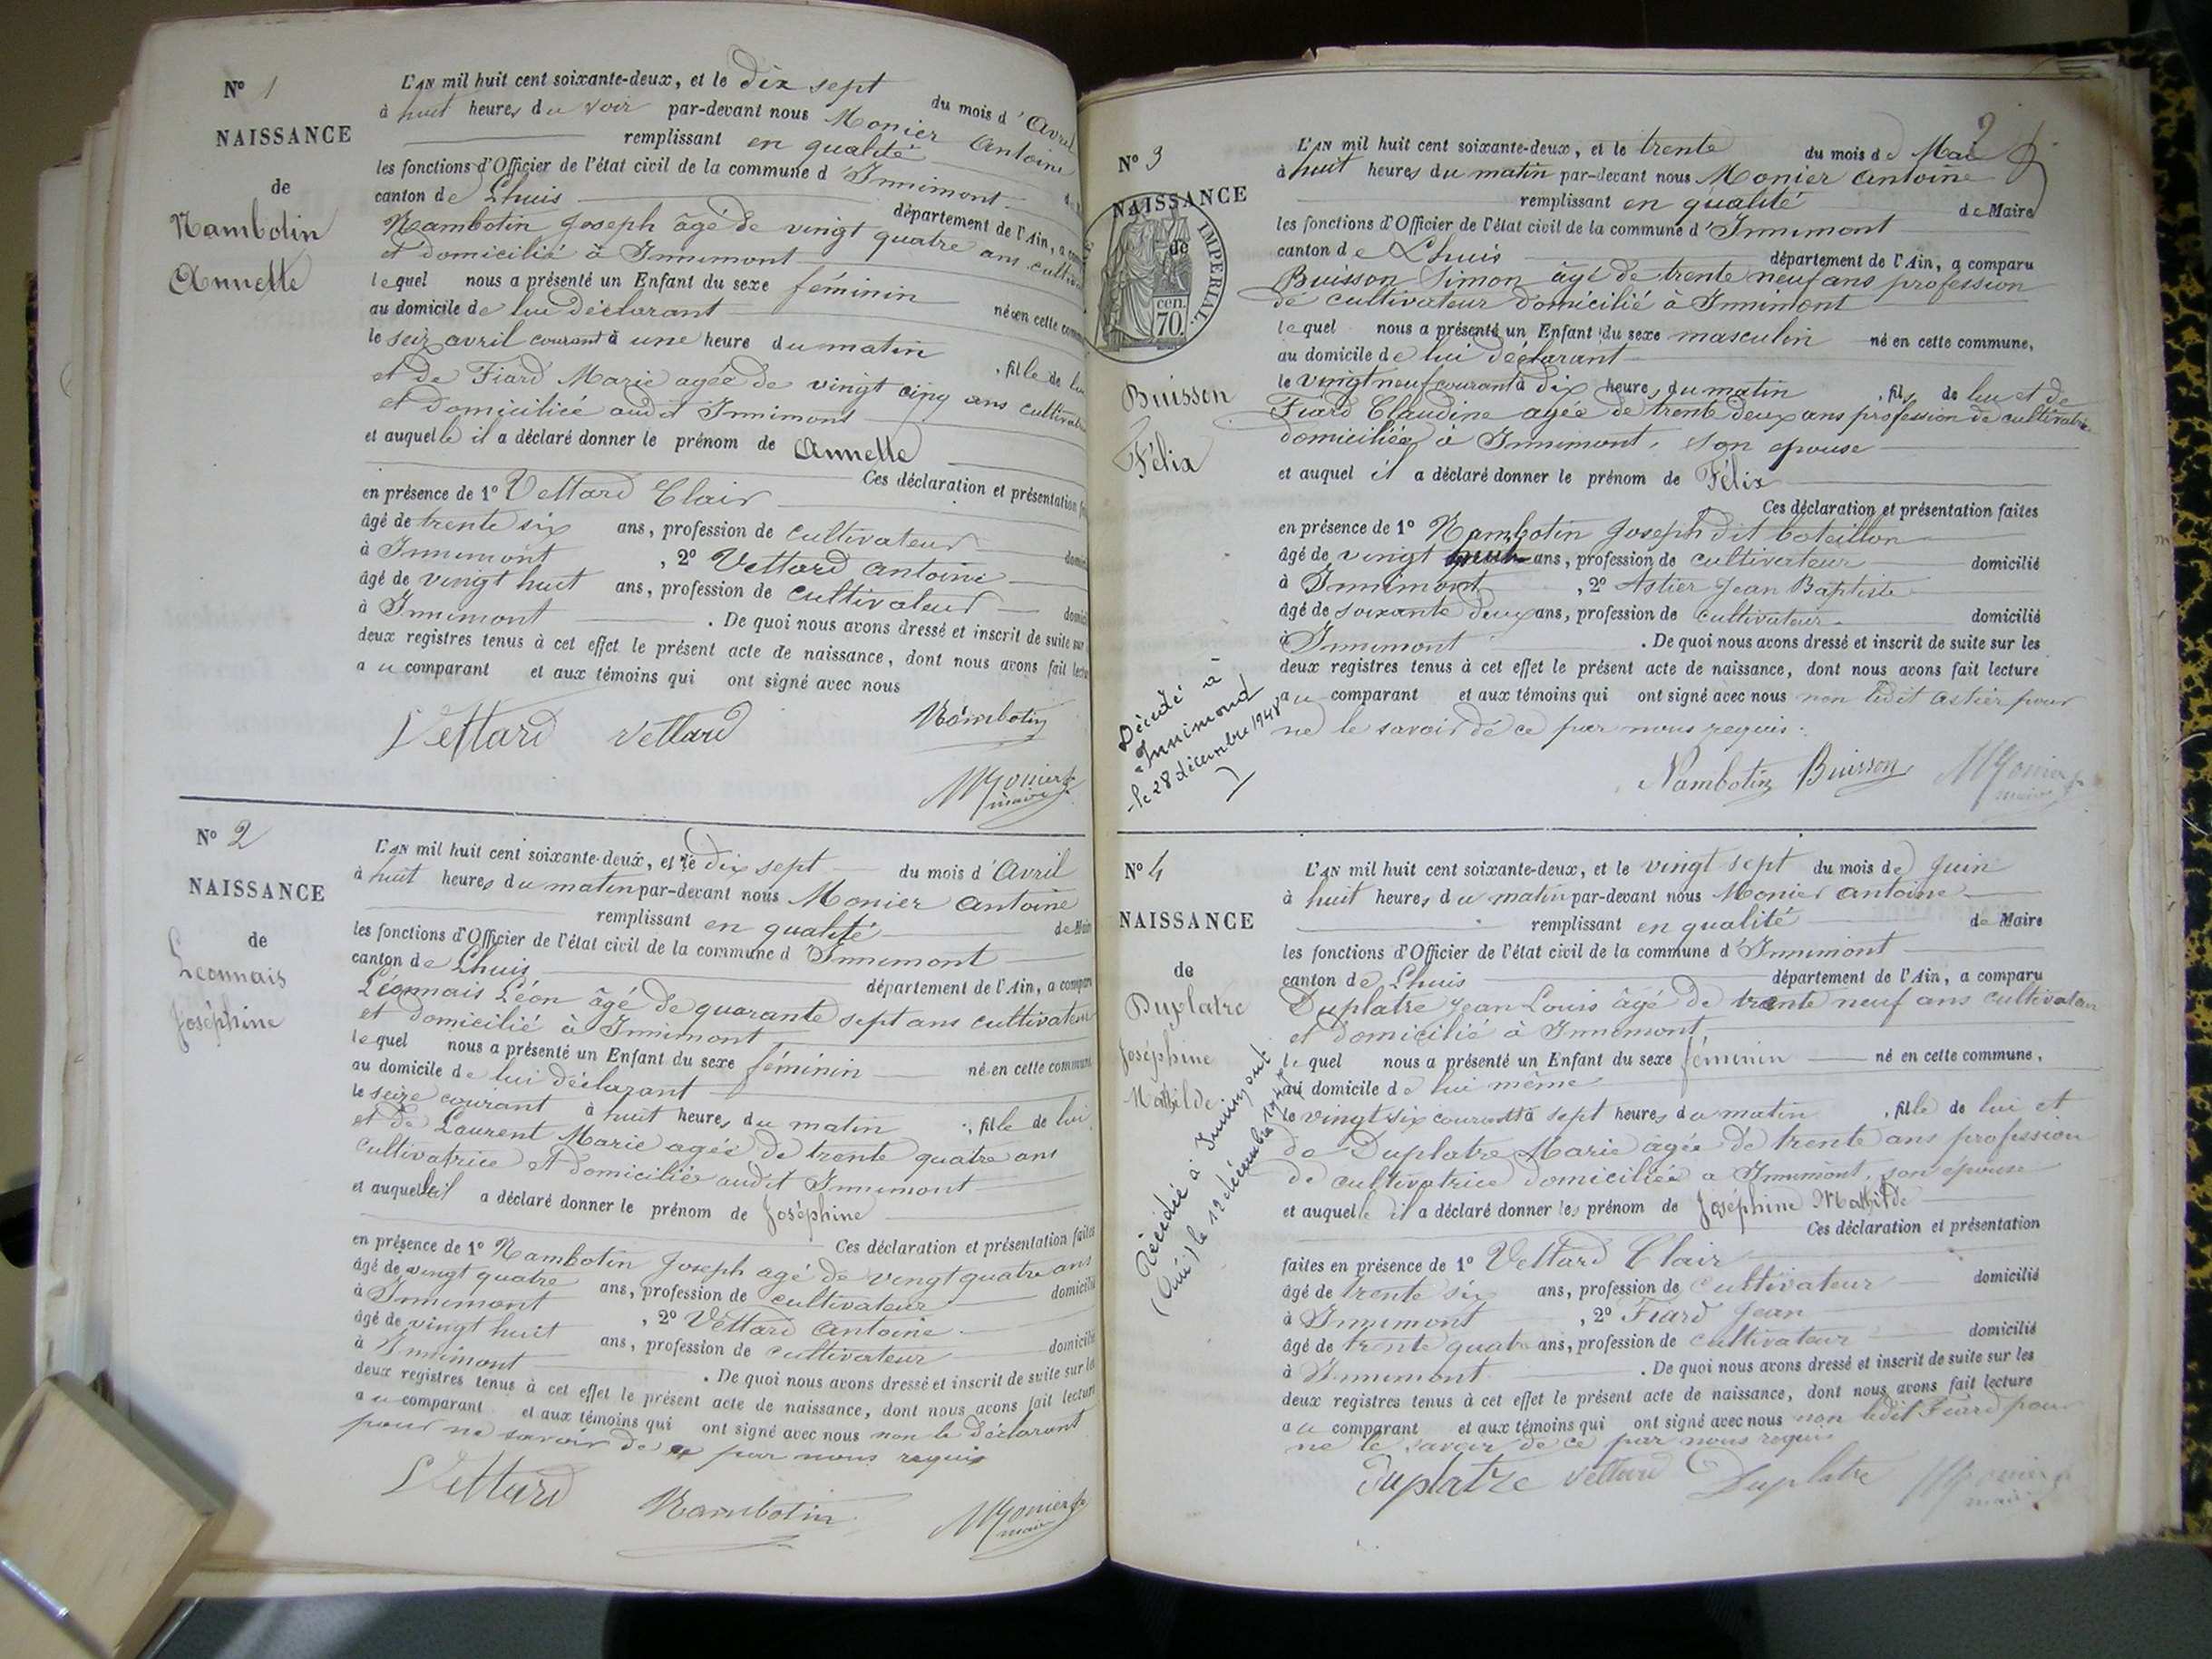 N° 1
NAISSANCE
de
Nambotin
Annette
L'AN mil huit cent soixante-deux, et le dix sept du mois d'Avril
à huit heures du soir par-devant nous Monier Antoine
remplissant en qualité
les fonctions d'Officier de l'état civil de la commune d'Innimont
canton de Lhuis département de l'Ain, a
Nambotin Joseph âgé de vingt quatre ans
et domicilié à Innimont
lequel nous a présenté un Enfant du sexe féminin né en cette
au domicile de lui déclarant
le seiz avril courant à une heure du matin , fille de lui
et de Fiard Marie agée de vingt cinq ans
et domiciliée audit Innimont
et auquelle il a déclaré donner le prénom de Annette
Ces déclaration et présentation
en présence de 1° Vettard Clair
âgé de trente six ans, profession de cultivateur
à Innimont , 2° Vettard Antoine
âgé de vingt huit ans, profession de cultivateur
à Innimont . De quoi nous avons dressé et inscrit de suite sur
deux registres tenus à cet effet le présent acte de naissance, dont nous avons fait
au comparant et aux témoins qui ont signé avec nous
Vettard Vettard Nambotin
Monier
maire
N° 2
NAISSANCE
de
Léonnais
Joséphine
L'AN mil huit cent soixante-deux, et le dix sept du mois d'Avril
à huit heures du matin par-devant nous Monier Antoine
remplissant en qualité de
les fonctions d'Officier de l'état civil de la commune d'Innimont
canton de Lhuis département de l'Ain, a
Léonnais Léon âgé de quarante sept ans cultivateur
et domicilié à Innimont
lequel nous a présenté un Enfant du sexe féminin né en cette
au domicile de lui déclarant
le seize courant à huit heures du matin , fille de lui
et de Laurent Marie agée de trente quatre ans
cultivatrice et domiciliée audit Innimont
et auquelle il a déclaré donner le prénom de Joséphine
Ces déclaration et présentation faites
en présence de 1° Nambotin Joseph agé de vingt quatre ans
âgé de vingt quatre ans, profession de cultivateur domicilié
à Innimont , 2° Vettard Antoine
âgé de vingt huit ans, profession de cultivateur
à Innimont . De quoi nous avons dressé et inscrit de suite sur les
deux registres tenus à cet effet le présent acte de naissance, dont nous avons fait lecture
au comparant et aux témoins qui ont signé avec nous non le déclarant
pour ne savoir de ce par nous requis
Vettard Nambotin Monier
maire
2
N° 3
NAISSANCE
de
IMPERIAL.
70 cen.
Buisson
Félix
Décédé à
Innimond
le 28 décembre 1948
L'AN mil huit cent soixante-deux, et le trente du mois de Mai
à huit heures du matin par-devant nous Monier Antoine
remplissant en qualité de Maire
les fonctions d'Officier de l'état civil de la commune d'Innimont
canton de Lhuis département de l'Ain, a comparu
Buisson Simon âgé de trente neuf ans profession
de cultivateur domicilié à Innimont
lequel nous a présenté un Enfant du sexe masculin né en cette commune,
au domicile de lui déclarant
le vingt neuf courant à dix heures du matin , fils de lui et de
Fiard Claudine agée de trente deux ans profession de cultivatrice
domiciliée à Innimont, son epouse
et auquel il a déclaré donner le prénom de Félix
Ces déclaration et présentation faites
en présence de 1° Nambotin Joseph dit boteillon
âgé de vingt ans, profession de cultivateur domicilié
à Innimont , 2° Astier Jean Baptiste
âgé de soixante deux ans, profession de cultivateur domicilié
à Innimont . De quoi nous avons dressé et inscrit de suite sur les
deux registres tenus à cet effet le présent acte de naissance, dont nous avons fait lecture
au comparant et aux témoins qui ont signé avec nous non ledit Astier pour
ne le savoir de ce par nous requis.
Nambotin Buisson Monier
maire
N° 4
NAISSANCE
de
Duplatre
Joséphine
Mathilde
Décédée à Innimont
(Ain) le 12 décembre
L'AN mil huit cent soixante-deux, et le vingt sept du mois de Juin
à huit heures du matin par-devant nous Monier Antoine
remplissant en qualité de Maire
les fonctions d'Officier de l'état civil de la commune d'Innimont
canton de Lhuis département de l'Ain, a comparu
Duplatre Jean Louis âgé de trente neuf ans cultivateur
et domicilié à Innimont
lequel nous a présenté un Enfant du sexe féminin né en cette commune,
au domicile de lui même
le vingt six courant à sept heures du matin , fille de lui et
de Duplatre Marie âgée de trente ans profession
de cultivatrice domiciliée a Innimont, son épouse
et auquelle il a déclaré donner les prénom de Joséphine Mathilde
Ces déclaration et présentation
faites en présence de 1° Vettard Clair
âgé de trente six ans, profession de cultivateur domicilié
à Innimont , 2° Fiard Jean
âgé de trente quatre ans, profession de cultivateur domicilié
à Innimont . De quoi nous avons dressé et inscrit de suite sur les
deux registres tenus à cet effet le présent acte de naissance, dont nous avons fait lecture
au comparant et aux témoins qui ont signé avec nous non ledit Fiard pour
ne le savoir de ce par nous requis
Duplatre Vettard Duplatre Monier
maire